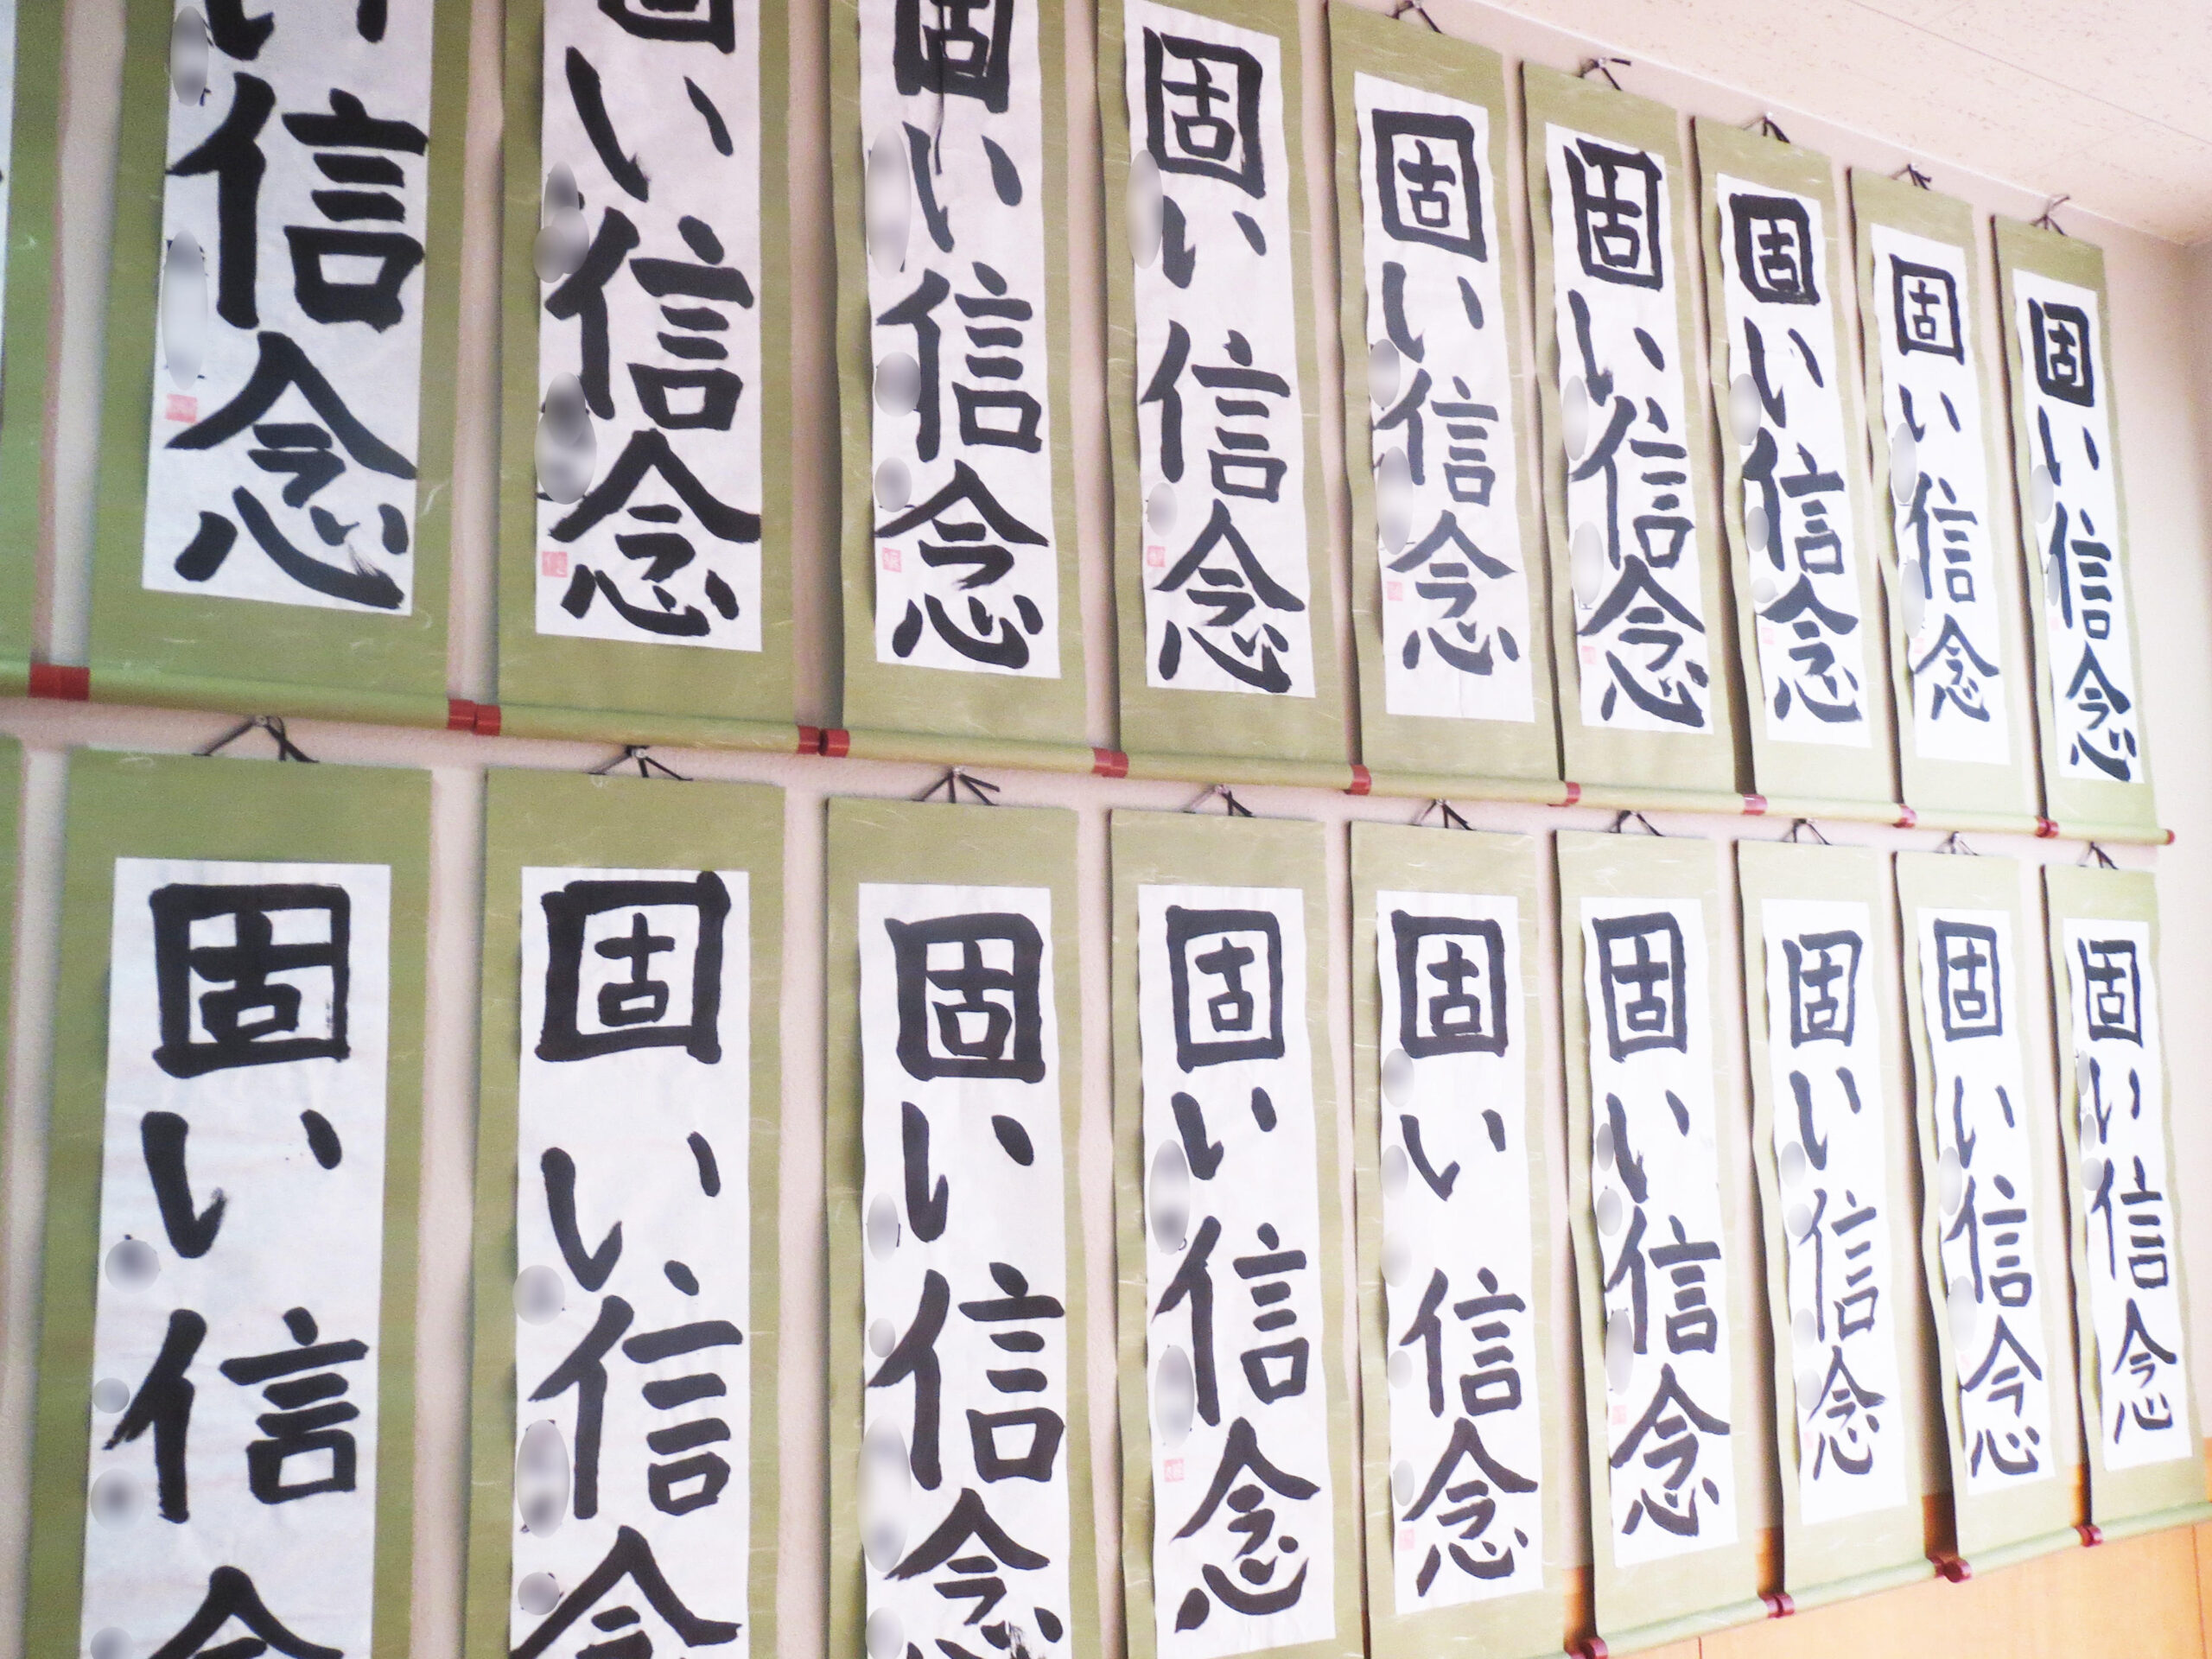 固い信念
固い信念
固い信念
固い信念
固い信念
固い信念
固い信念
固い信念
い信念
固い信念
固い信念
固い信念
固い信念
固い信念
固い信念
固い信念
固い信念
固い信念